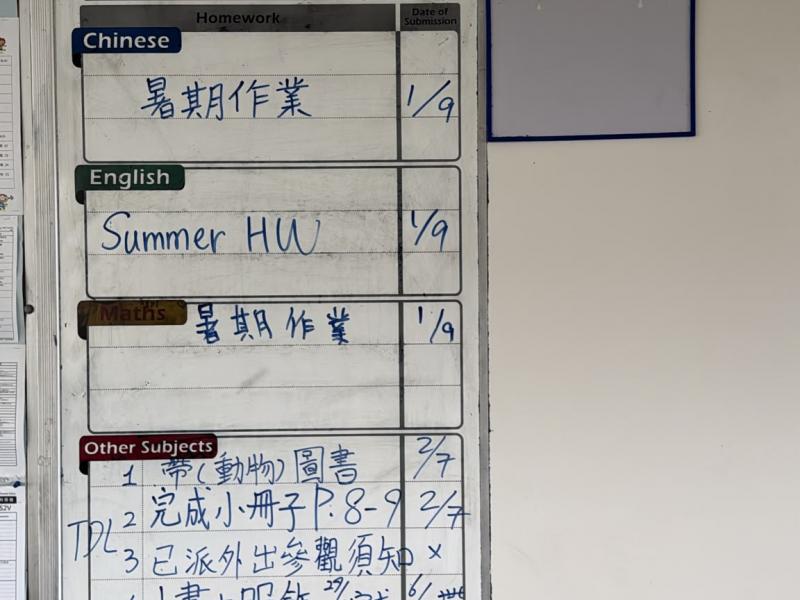 Homework
Date of Submission
Chinese
暑期作業 1/9
English
Summer HW 1/9
Maths
暑期作業 1/9
Other Subjects
1 帶(動物)圖書 2/7
TDL 2 完成小冊子 P.8-9 2/7
3 已派外出參觀須知 ×